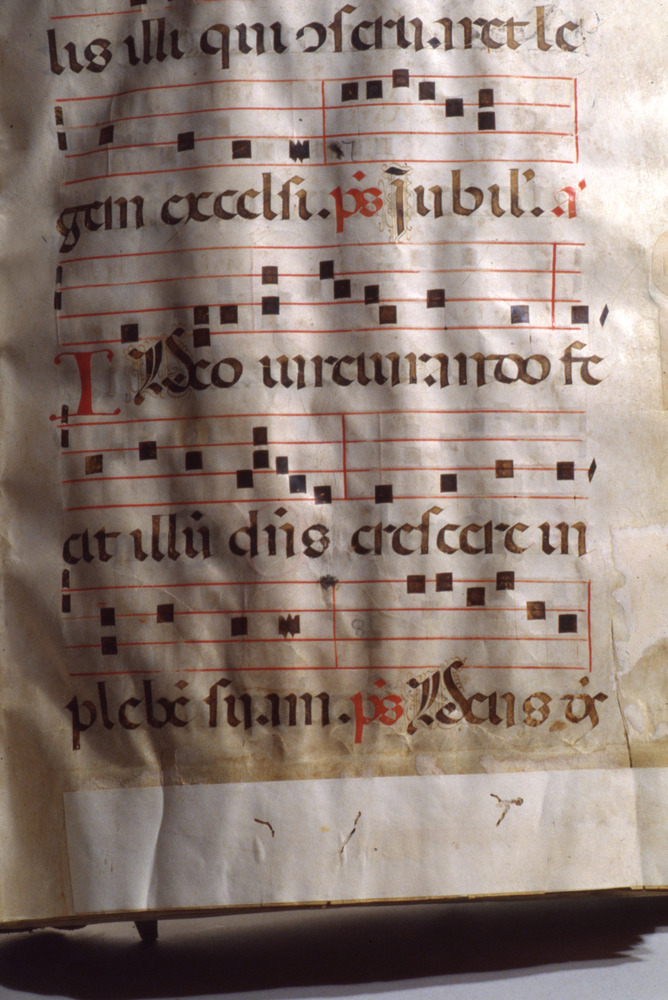 lis illi qui ɔſeruaret le
7
gem excelſi. ps̄ Jubil'. a'
I Deo iureiurando fe
cit illū dn̄s creſcere in
8
plebē ſuam. ps̄ Deus ds̄